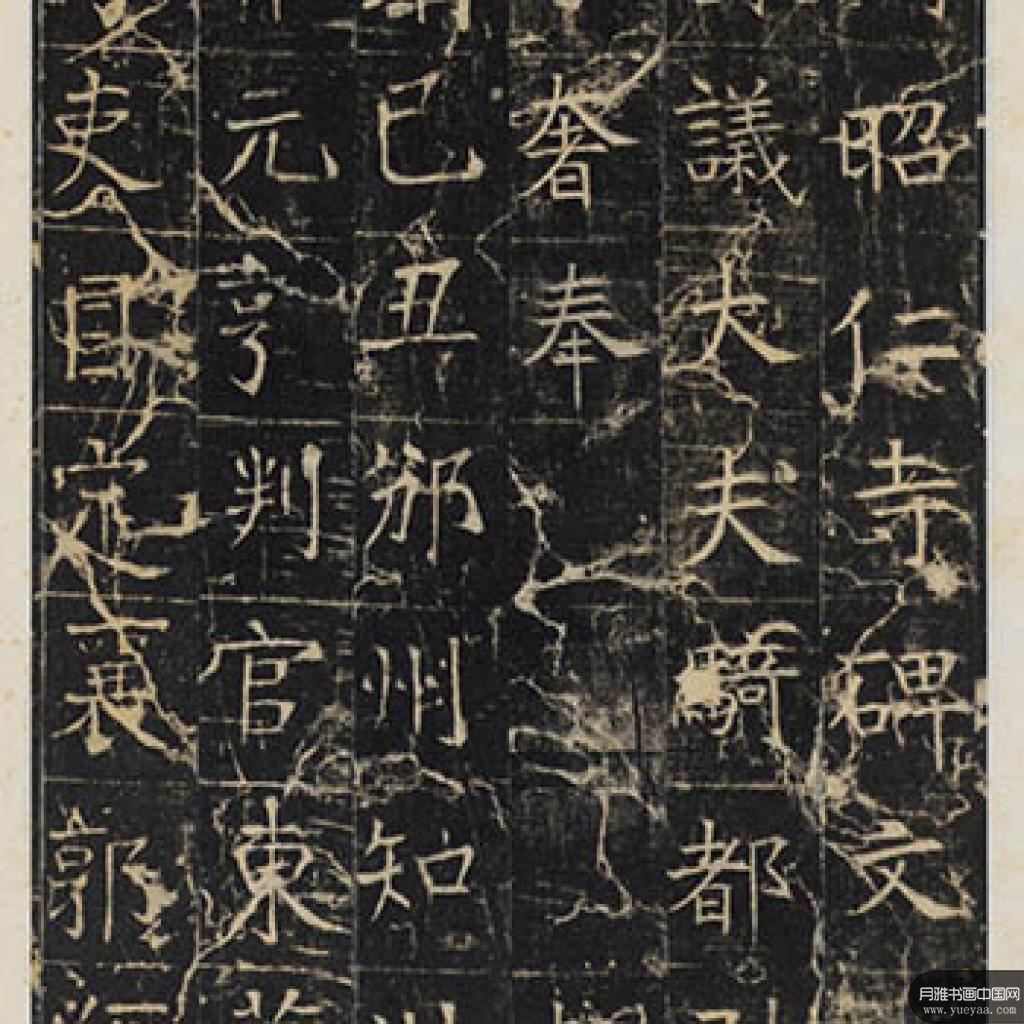 昭仁寺碑文
議大夫騎都
奢奉
已丑邠州知
元亨判官東
吏目定襄郭
月雅书画中国网
www.yueyaa.com